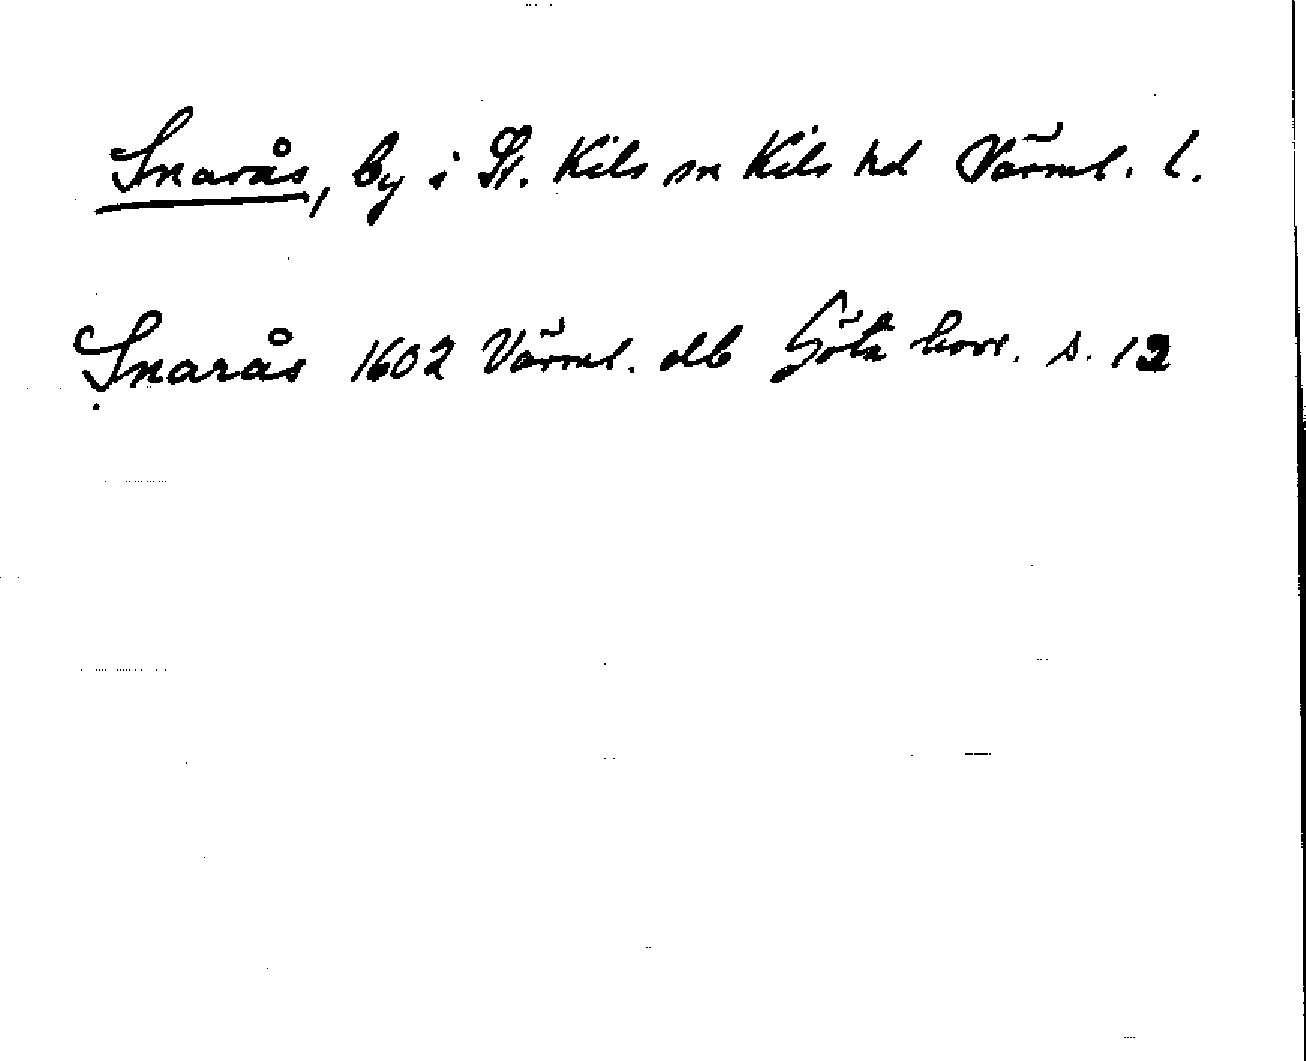 Snarås, by i St. Kils sn Kils hd Värml. l.
Snarås 1602 Värml. db Göta hovr. s. 12